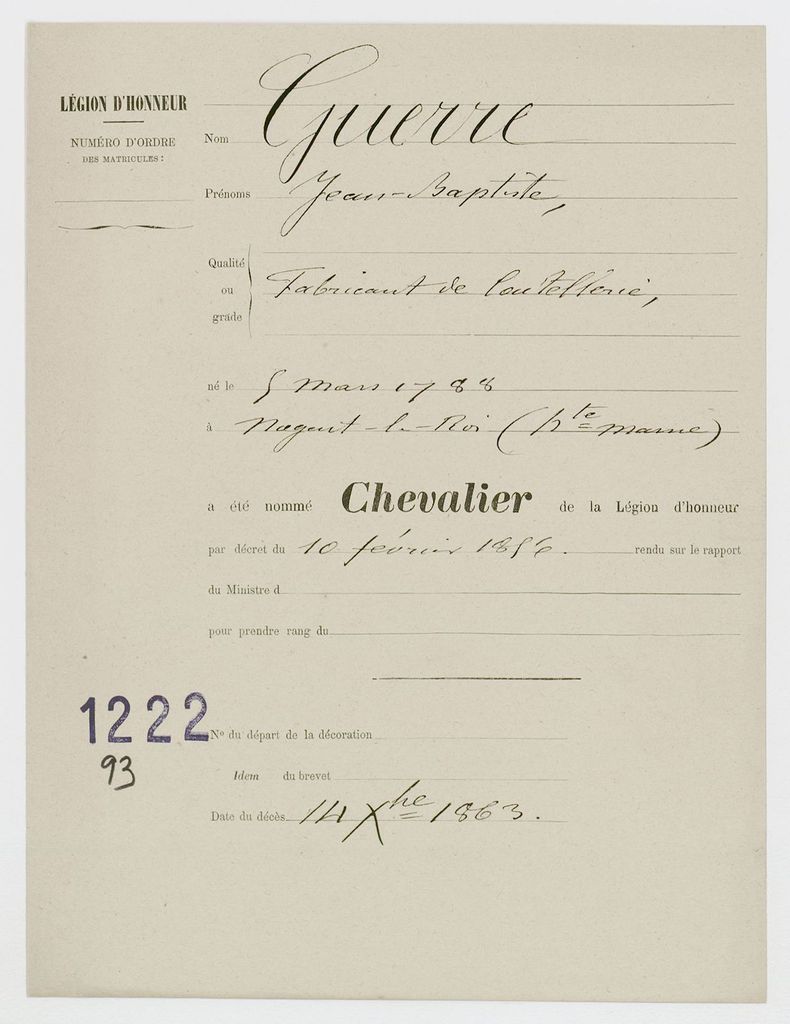 LÉGION D'HONNEUR
NUMÉRO D'ORDRE
DES MATRICULES :
Nom Guerre
Prénoms Jean-Baptiste,
Qualité
ou
grade
Fabricant de Coutellerie,
né le 5 mars 1788
à Nogent-le-Roi (hte marne)
a été nommé Chevalier de la Légion d'honneur
par décret du 10 février 1856. rendu sur le rapport
du Ministre d
pour prendre rang du
1222
93
No du départ de la décoration
Idem du brevet
Date du décès 14 Xbe 1863.